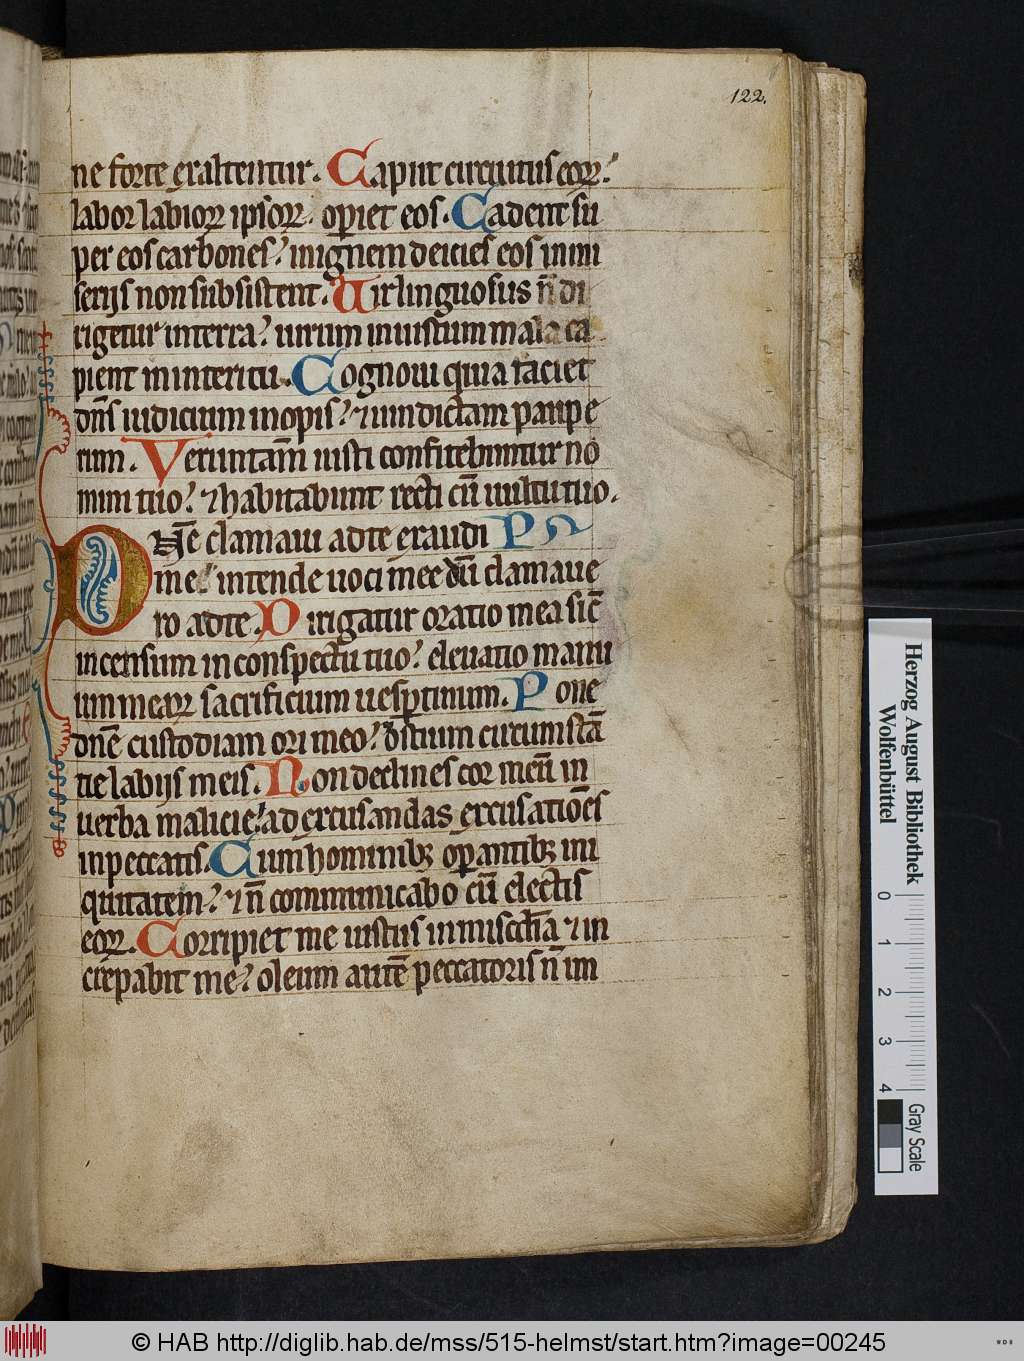 122.
ne forte exaltentur. Caput circuitus eoꝝ:
labor labioꝝ ipsoꝝ. oꝑiet eos. Cadent su
per eos carbones: in ignem deicies eos in mi
serijs non subsistent. Uir linguosus n̄ di
rigetur in terra: uirum iniustum mala ca
pient in interitu. Cognoui quia faciet
dn̄s iudicium inopis: ⁊ uindictam paupe
rum. Veruntam̄ iusti confitebuntur no
mini tuo: ⁊ habitabunt recti cū uultu tuo.
Dn̄e clamaui ad te exaudi Ps
me intende uoci mee dū clamaue
ro ad te. Dirigatur oratio mea sic̄
incensum in conspectu tuo: eleuatio manu
um meaꝝ sacrificium uesꝑtinum. Pone
dn̄e custodiam ori meo: ⁊ ostium circumstā
tie labijs meis. Non declines cor meū in
uerba malicie: ad excusandas excusatiōes
in peccatis. Cum hominibꝫ oꝑantibꝫ ini
quitatem: ⁊ n̄ communicabo cū electis
eoꝝ. Corripiet me iustus in mis̄cdīa ⁊ in
crepabit me: oleum autē peccatoris n̄ im
Herzog August Bibliothek
Wolfenbüttel
0 1 2 3 4
Gray Scale
© HAB http://diglib.hab.de/mss/515-helmst/start.htm?image=00245